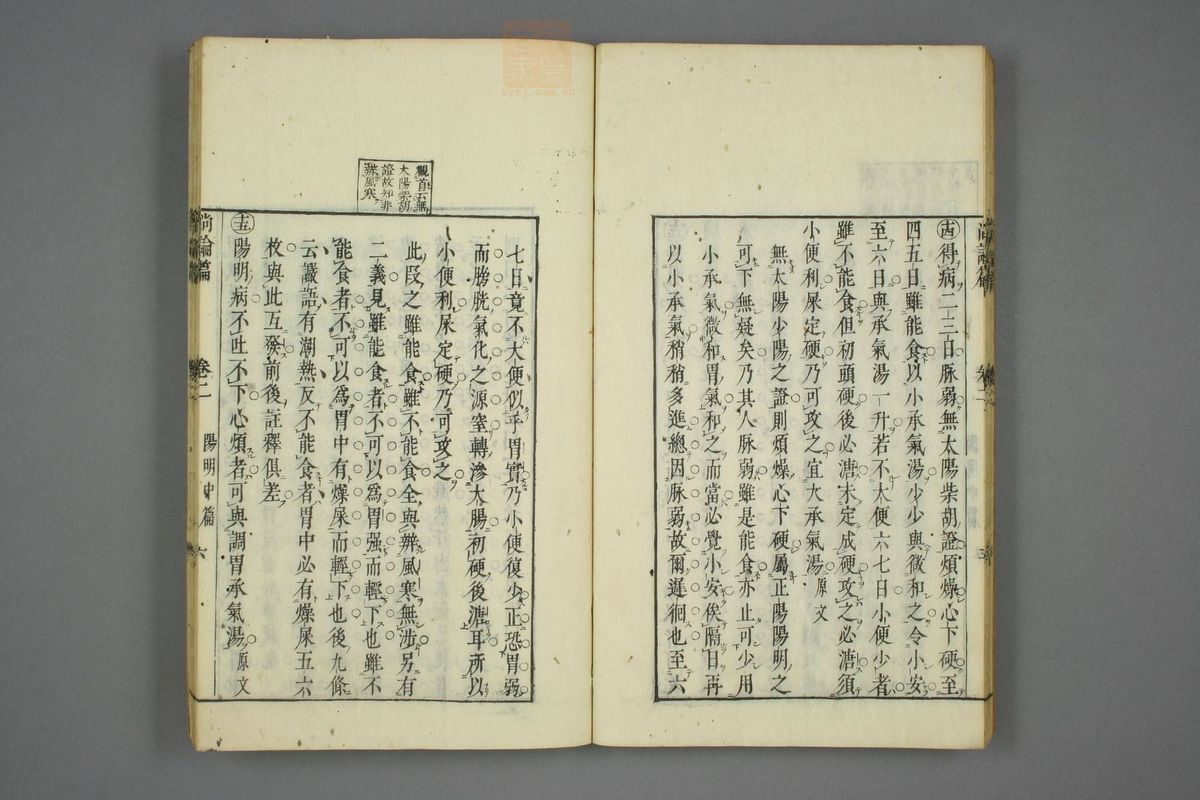 尚論篇
卷二
㐁得病二三日脉弱無太陽柴胡證煩燥心下硬至
四五日雖能食以小承氣湯少少與微和之令小安
至六日與承氣湯一升若不大便六七日小便少者
雖不能食但初頭硬後必溏未定成硬攻之必溏須
小便利屎定硬乃可攻之宜大承氣湯原文
無太陽少陽之證則煩燥心下硬屬正陽陽明之
可下無疑矣乃其人脉弱雖是能食亦止可少用
小承氣微和胃氣和之而當必覺小安俟隔日再
以小承氣稍稍多進總因脉弱故爾遲徊也至六
七日竟不大便似乎胃實乃小便復少正恐胃弱
而膀胱氣化之源窒轉滲大腸初硬後溏耳所以
小便利屎定硬乃可攻之
此段之雖能食雖不能食全與辨風寒無涉另有
二義見雖能食者不可以爲胃强而輕下也雖不
能食者不可以爲胃中有燥屎而輕下也後九條
云讝語有潮熱反不能食者胃中必有燥屎五六
枚與此互發前後註釋俱差
陽明病不吐不下心煩者可與調胃承氣湯原文
觀首云無
太陽柴胡
證故知非
辨風寒
尚論篇
卷二
陽明中篇
六
zysj.com.cn